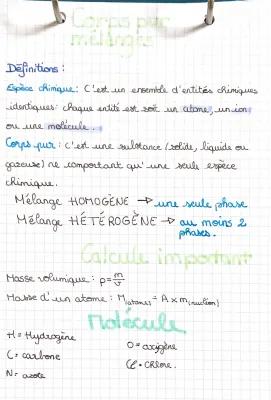 Corps pur
mélanges
Définitions :
Espèce chimique : C'est un ensemble d'entités chimiques
identiques : chaque entité est soit un atome, un ion
ou une molécule.
Corps pur : c'est une substance (solide, liquide ou
gazeuse) ne comportant qu'une seule espèce
chimique.
Mélange HOMOGÈNE → une seule phase
Mélange HÉTÉROGÈNE → au moins 2
phases.
Calcule important
Masse volumique : ρ = m/v
Masse d'un atome : M(atomes) = A × m(nucléon)
Molécule
H = Hydrogène
O = oxygène
C = carbone
Cl = Chlore.
N = azote